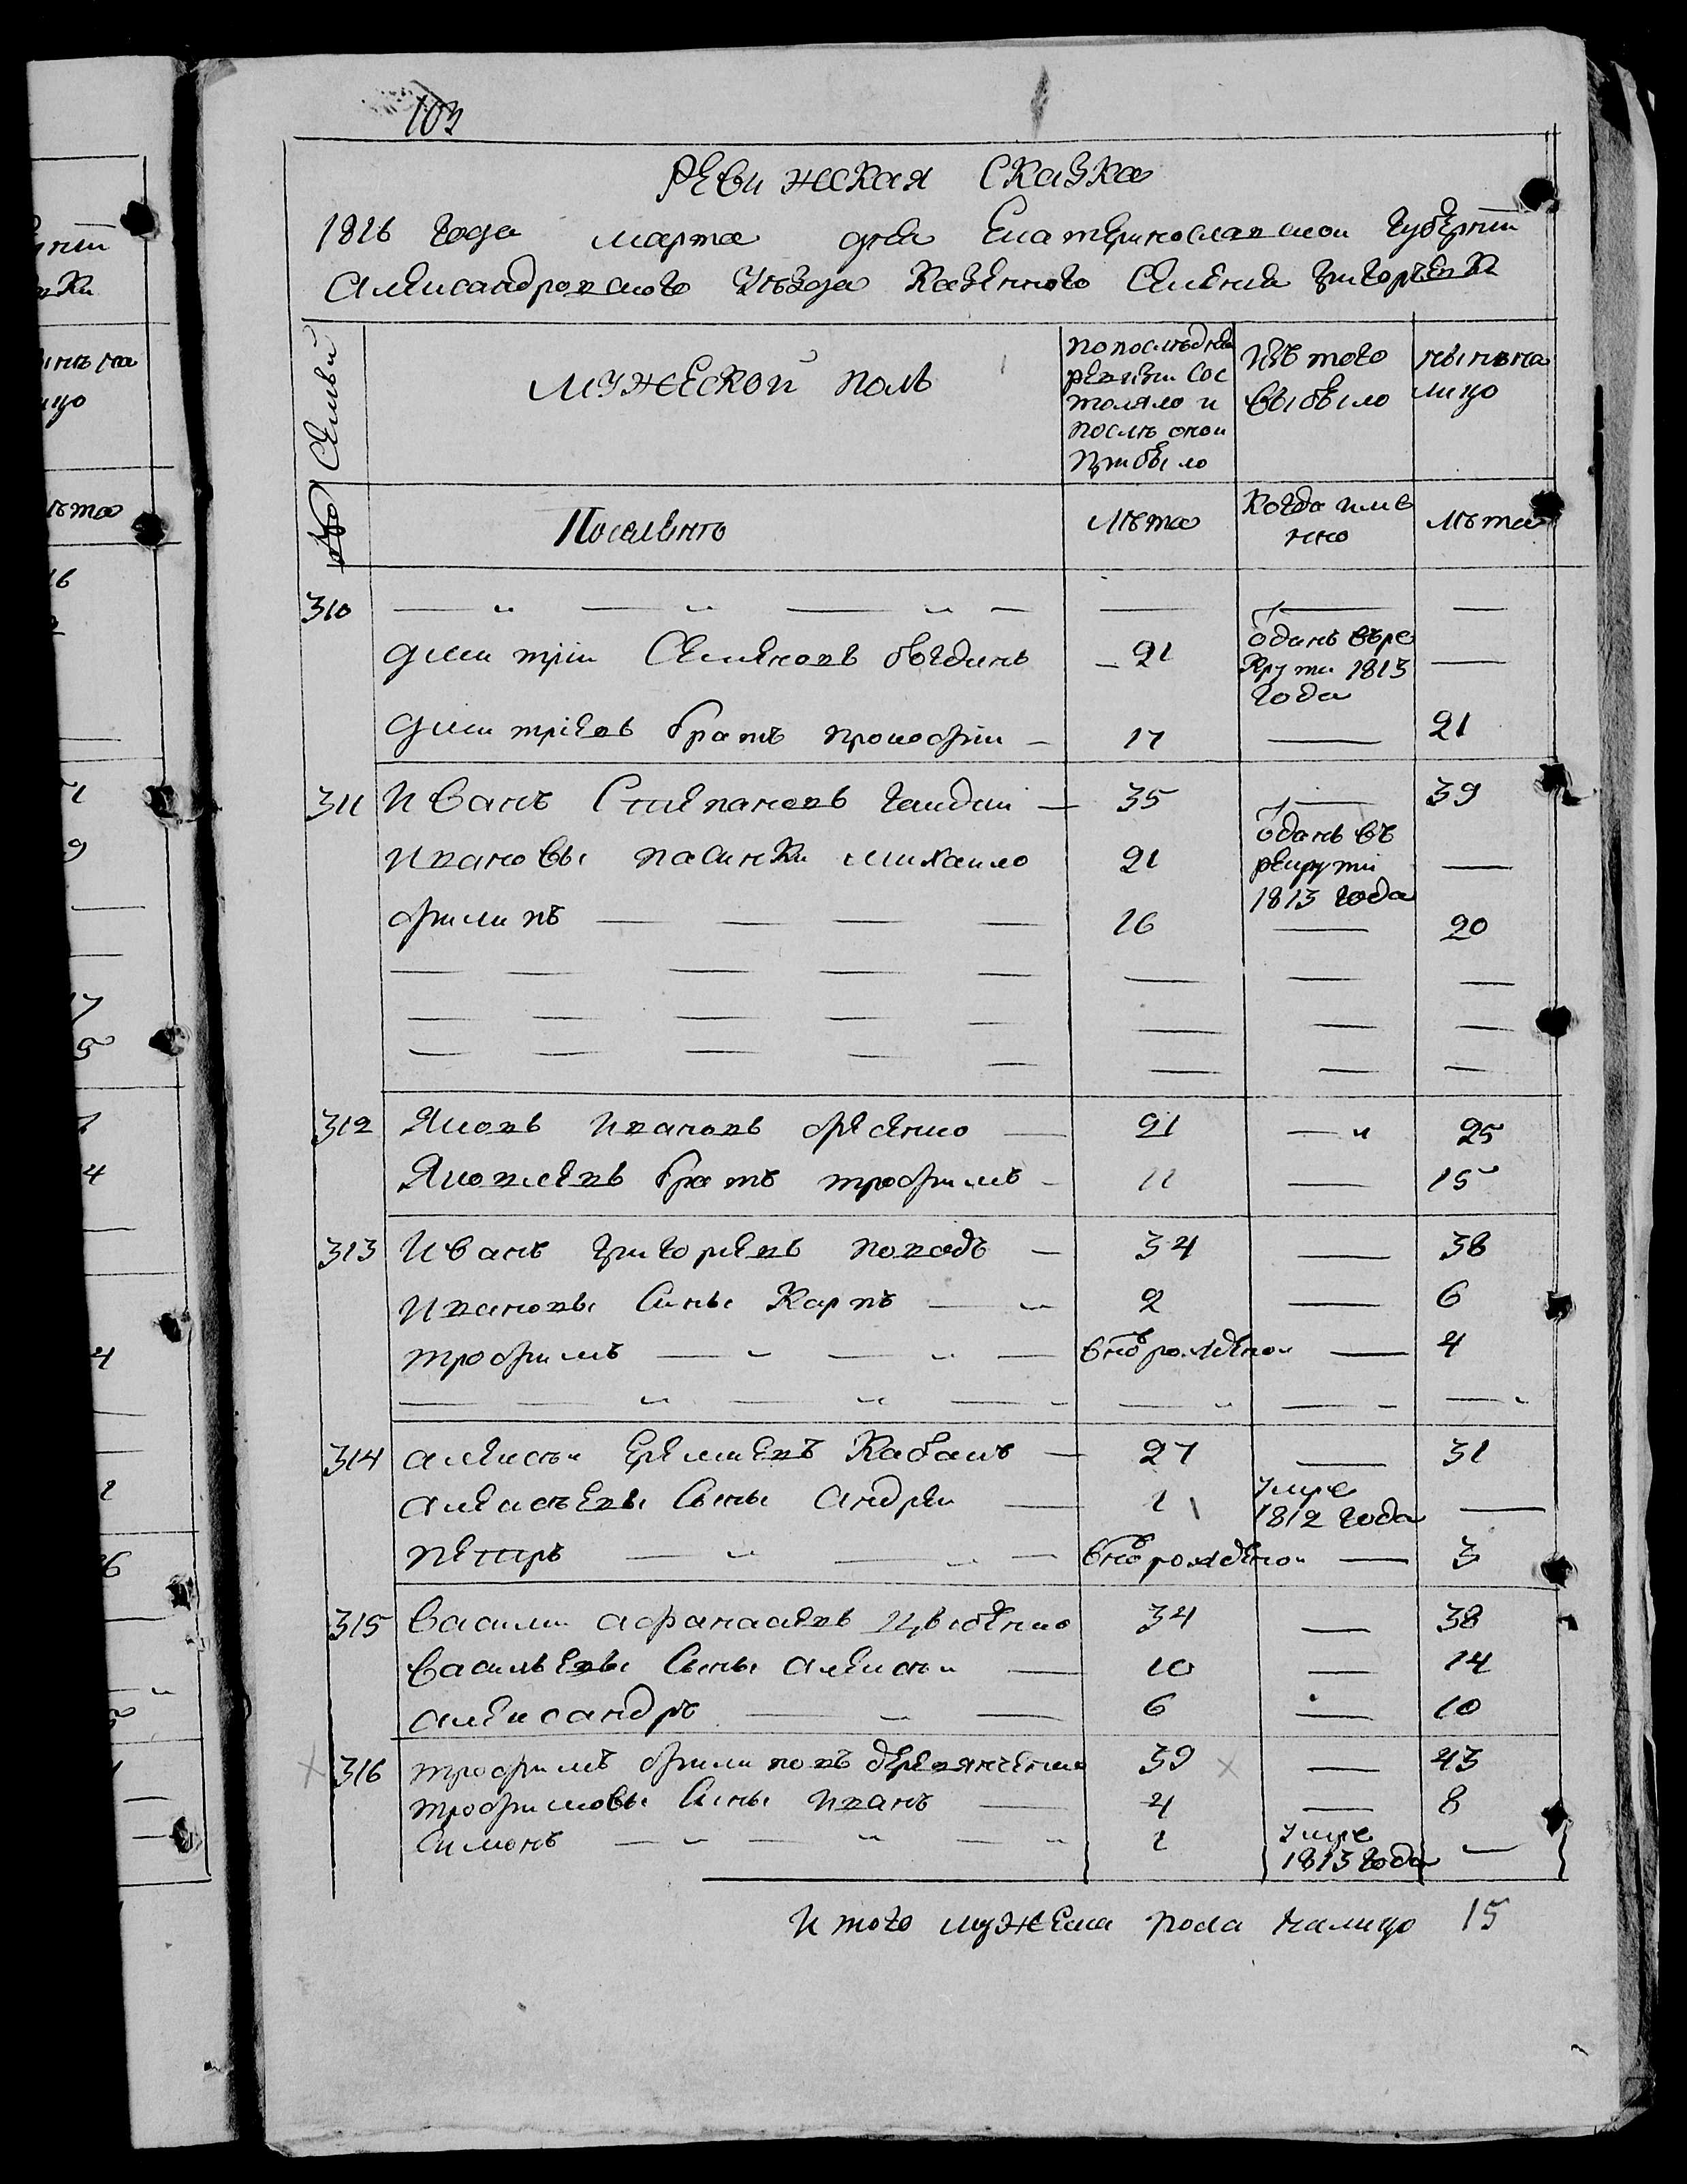 103
Ревижская Сказка
1816 года марта дня Екатеринославской Губернїи
Александровского уѣзда Казенного Селения григорьевки
№ Семьи
мужеской полъ
по последней ревизии состояло и после оной прибыло
изъ того выбыло
ныне на лицо
Поселяне
Лѣта
Когда имянно
Лѣта
310 — „ — „ — „ — — — —
Дмитрїи Семеновъ бѣдинъ — 21 отданъ въ рекруты 1813 года —
Дмитрїевъ братъ прокофїи — 17 — 21
311 Иванъ Степановъ гаидїи — 35 — 39
Ивановы пасинки михаило 21 отданъ въ рекруты 1813 года —
филипъ — — — — 16 — 20
312 Яковъ Ивановъ фесенко — 21 — „ 25
Яковлевъ братъ трофимъ — 11 — 15
313 Иванъ григорьевъ поводъ — 34 — 38
Ивановы Сины Карпъ — „ 2 — 6
трофимъ — „ — „ — вновь рожденой — 4
314 алексѣи еремеевъ Кабакъ — 27 — 31
алексѣевы Сыны Андреи — 1 умре 1812 года —
петръ — „ — „ — вновь рожденой — 3
315 Василии афанасиевъ Цыбенко 34 — 38
Васильевы Сыны алексѣи — 10 — 14
александръ — „ — 6 — 10
316 трофимъ филиповъ деревянченко 39 — 43
трофимовы Сины иванъ — 4 — 8
Симонъ — „ — „ — „ 1 умре 1813 года —
Итого мужеска пола налицо 15